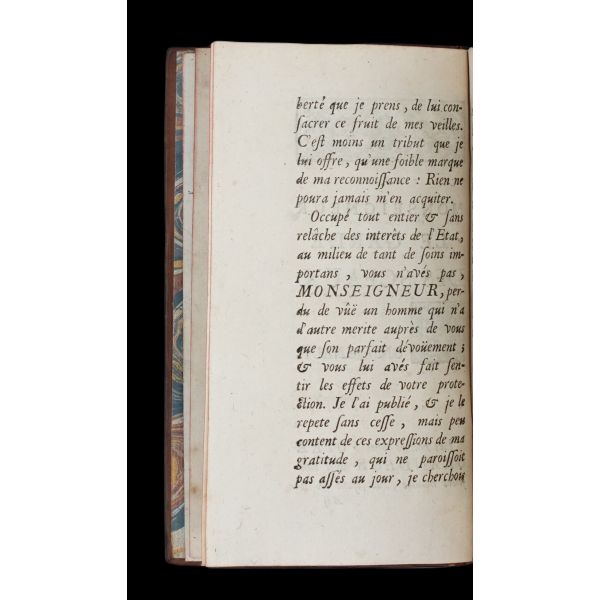 berté que je prens, de lui con-
ſacrer ce fruit de mes veilles.
C'eſt moins un tribut que je
lui offre, qu'une foible marque
de ma reconnoiſſance : Rien ne
poura jamais m'en acquiter.
Occupé tout entier & ſans
relâche des interêts de l'Etat,
au milieu de tant de ſoins im-
portans, vous n'avés pas,
MONSEIGNEUR, per-
du de vûë un homme qui n'a
d'autre merite auprès de vous
que ſon parfait dévoüement ;
& vous lui avés fait ſen-
tir les effets de votre prote-
ction. Je l'ai publié, & je le
repete ſans ceſſe, mais peu
content de ces expreſſions de ma
gratitude, qui ne paroiſſoit
pas aſſés au jour, je cherchois